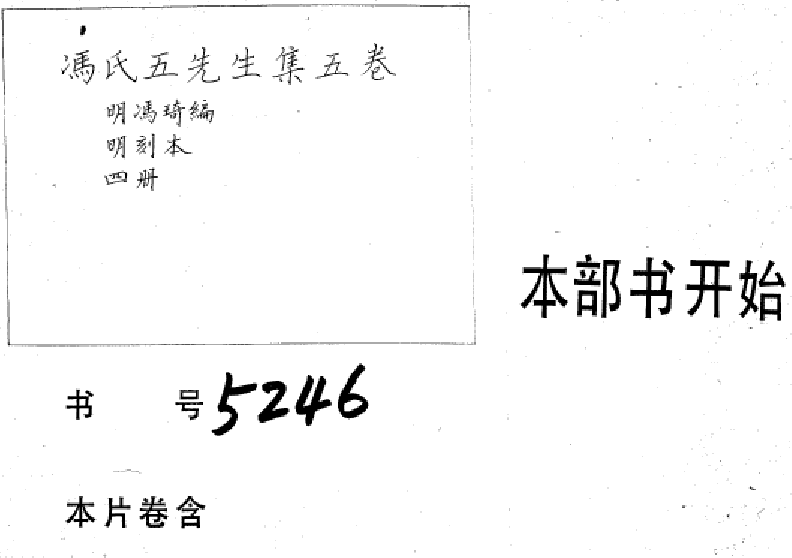 馮氏五先生集五卷
明馮琦編
明刻本
四册
本部书开始
书 号 5246
本片卷含